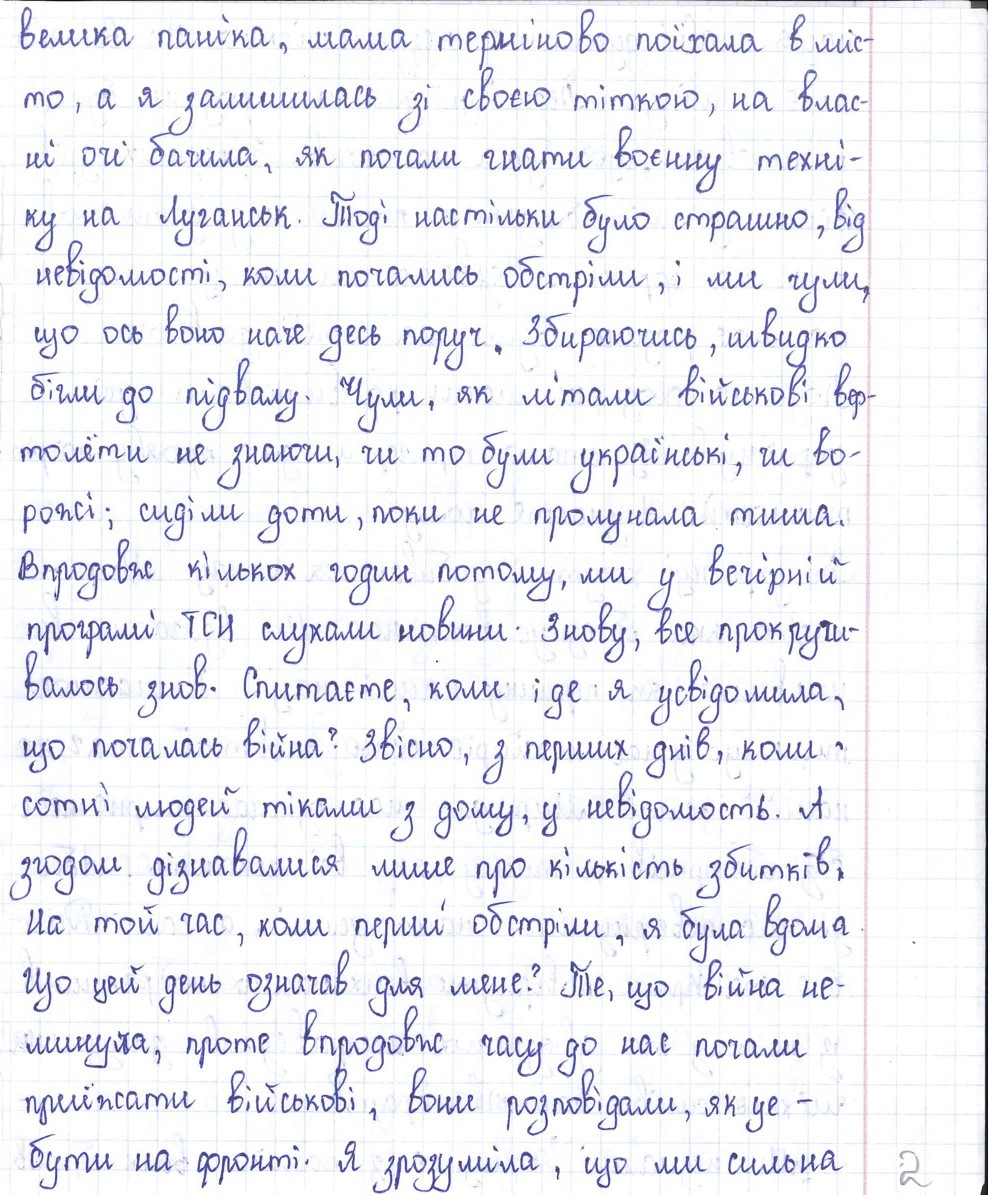 велика паніка, мама терміново поїхала в міс-
то, а я залишилась зі своєю тіткою, на влас-
ні очі бачила, як почали гнати воєнну техні-
ку на Луганськ. Тоді настільки було страшно, від
невідомості, коли почались обстріли, і ми чули,
що ось воно наче десь поруч. Збираючись, швидко
бігли до підвалу. Чули, як літали військові вер-
тольоти не знаючи, чи то були українські, чи во-
рожі; сиділи доти, поки не пролунала тиша.
Впродовж кількох годин потому, ми у вечірній
програмі ТСН слухали новини. Знову, все прокручу-
валось знов. Спитаєте, коли і де я усвідомила,
що почалась війна? Звісно, з перших днів, коли
сотні людей тікали з дому, у невідомость. А
згодом дізнавалися лише про кількість збитків.
На той час, коли перші обстріли, я була вдома
Що цей день означав для мене? Те, що війна не-
минуча, проте впродовж часу до нас почали
приїжати військові, вони розповідали, як це -
бути на фронті. Я зрозуміла, що ми сильна
2